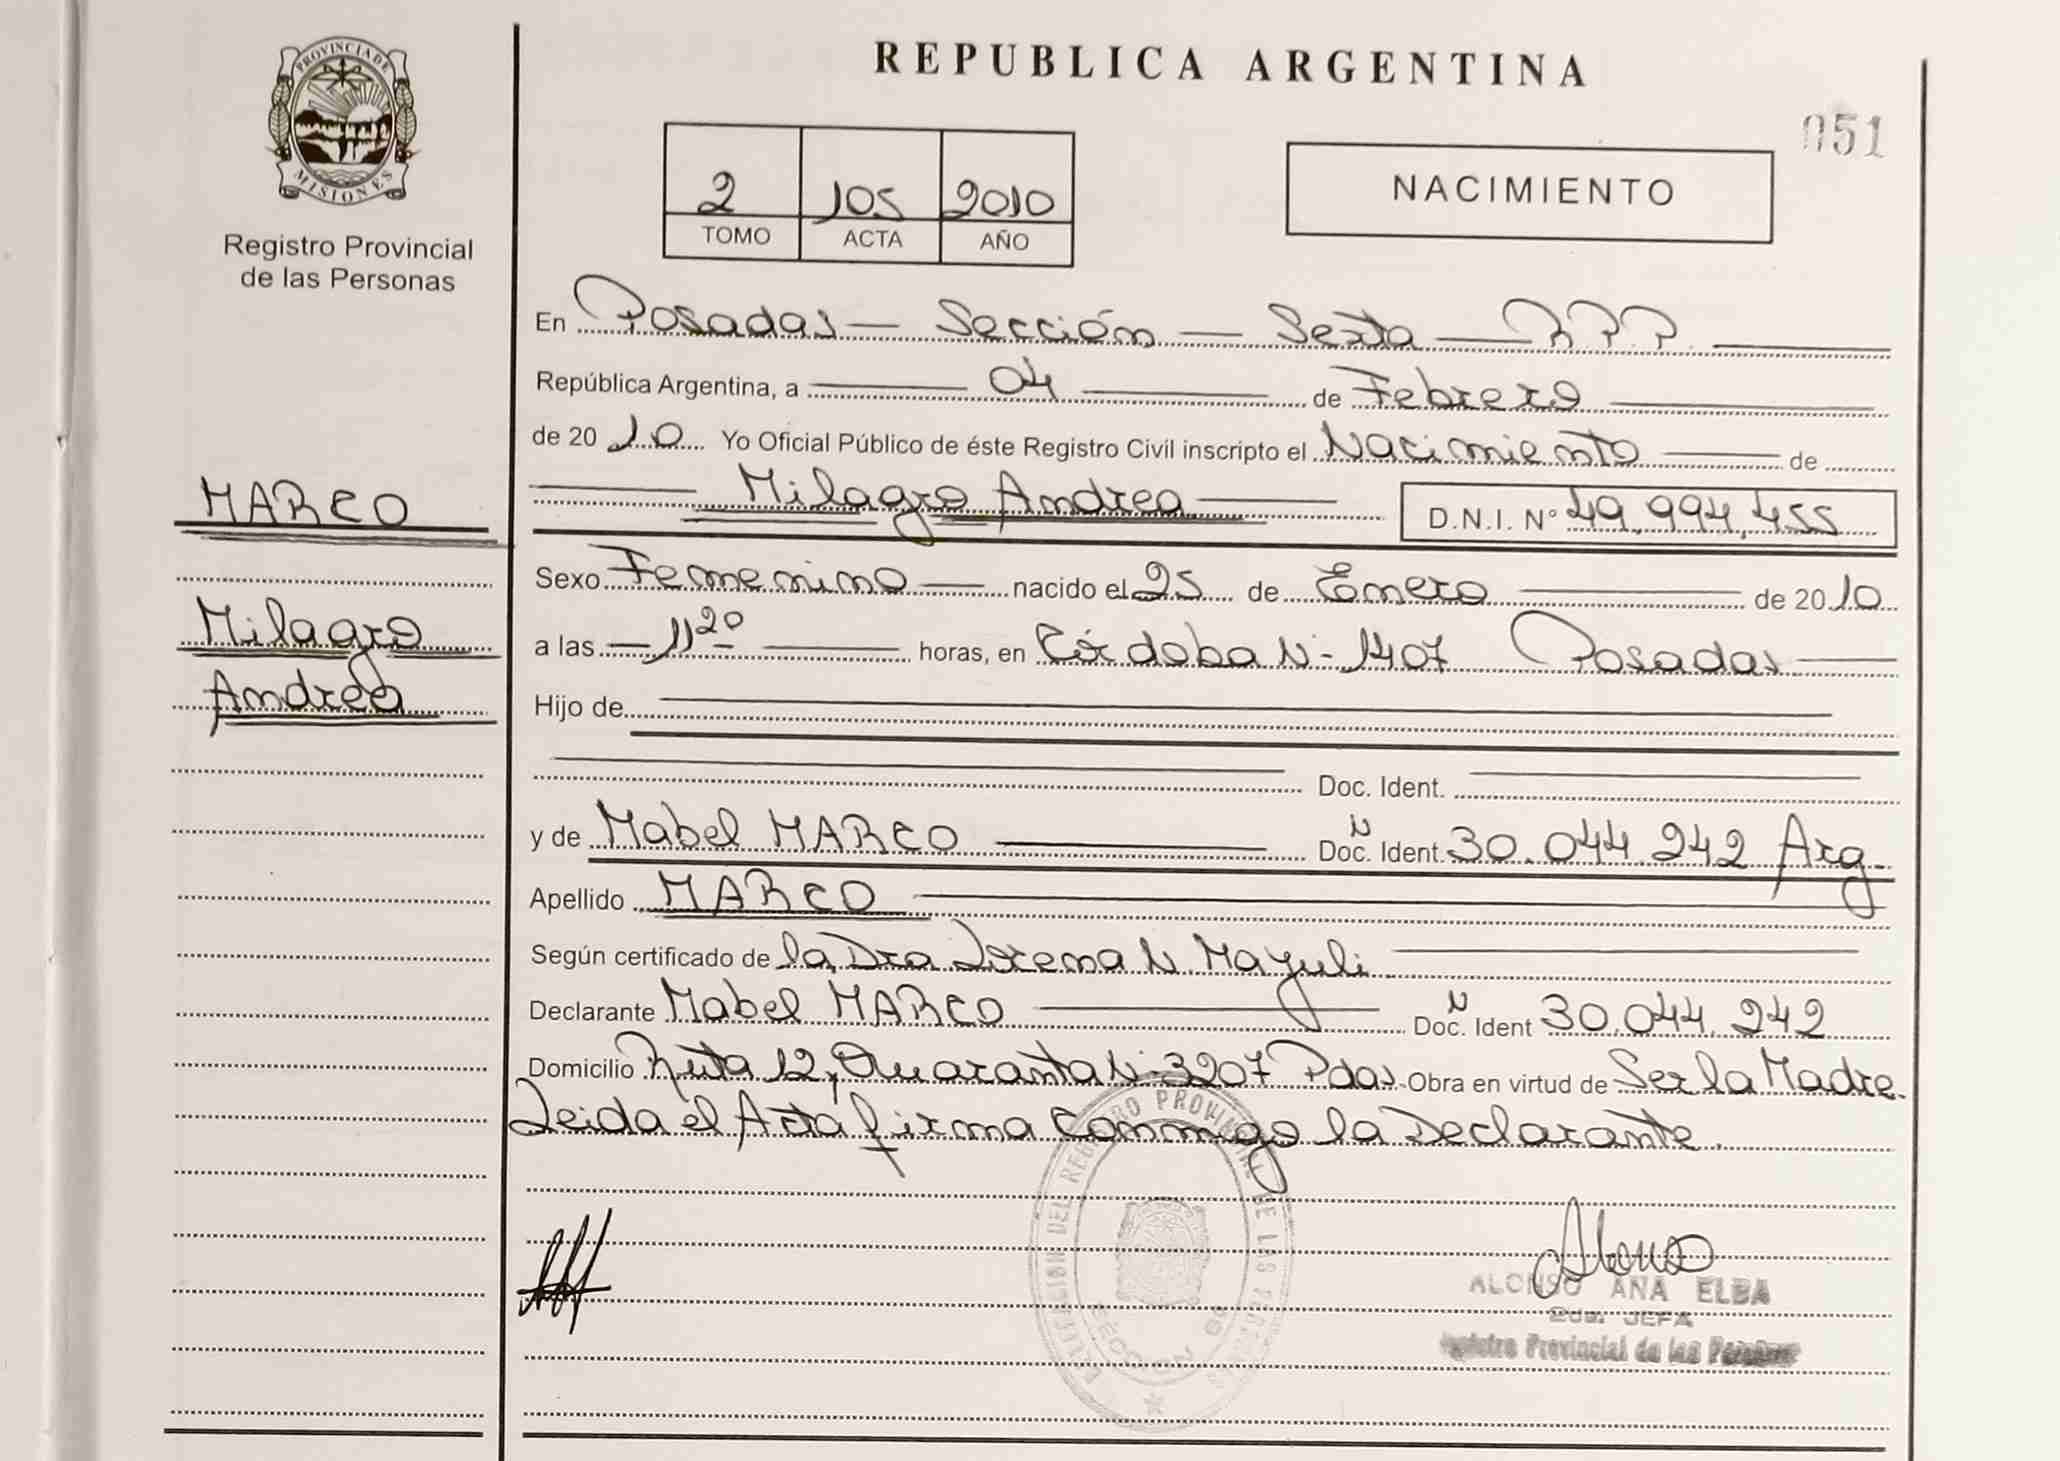 PROVINCIA DE
MISIONES
Registro Provincial
de las Personas
MARCO
Milagro
Andrea
REPUBLICA ARGENTINA
051
2 105 2010
TOMO ACTA AÑO
NACIMIENTO
En Posadas — Sección — Sexta — R.P.P.
República Argentina, a 04 de Febrero
de 2010 Yo Oficial Público de éste Registro Civil inscripto el Nacimiento de
Milagro Andrea D.N.I. Nº 49.994.455
Sexo Femenino nacido el 25 de Enero de 2010
a las 11 20 horas, en Córdoba N- 1407 Posadas
Hijo de
Doc. Ident.
y de Mabel MARCO Doc. Ident. N 30.044.242 Arg.
Apellido MARCO
Según certificado de la Dra Lorena N Mayuli
Declarante Mabel MARCO Doc. Ident N 30.044.242
Domicilio Ruta 12, Quaranta N- 3207 Pdas. Obra en virtud de Ser la Madre.
Leida el Acta firma Conmigo la Declarante.
DELEGACION DEL REGISTRO PROVINCIAL DE LAS PERSONAS
SECCION 6ª
ALONSO ANA ELBA
2da. JEFA
Registro Provincial de las Personas